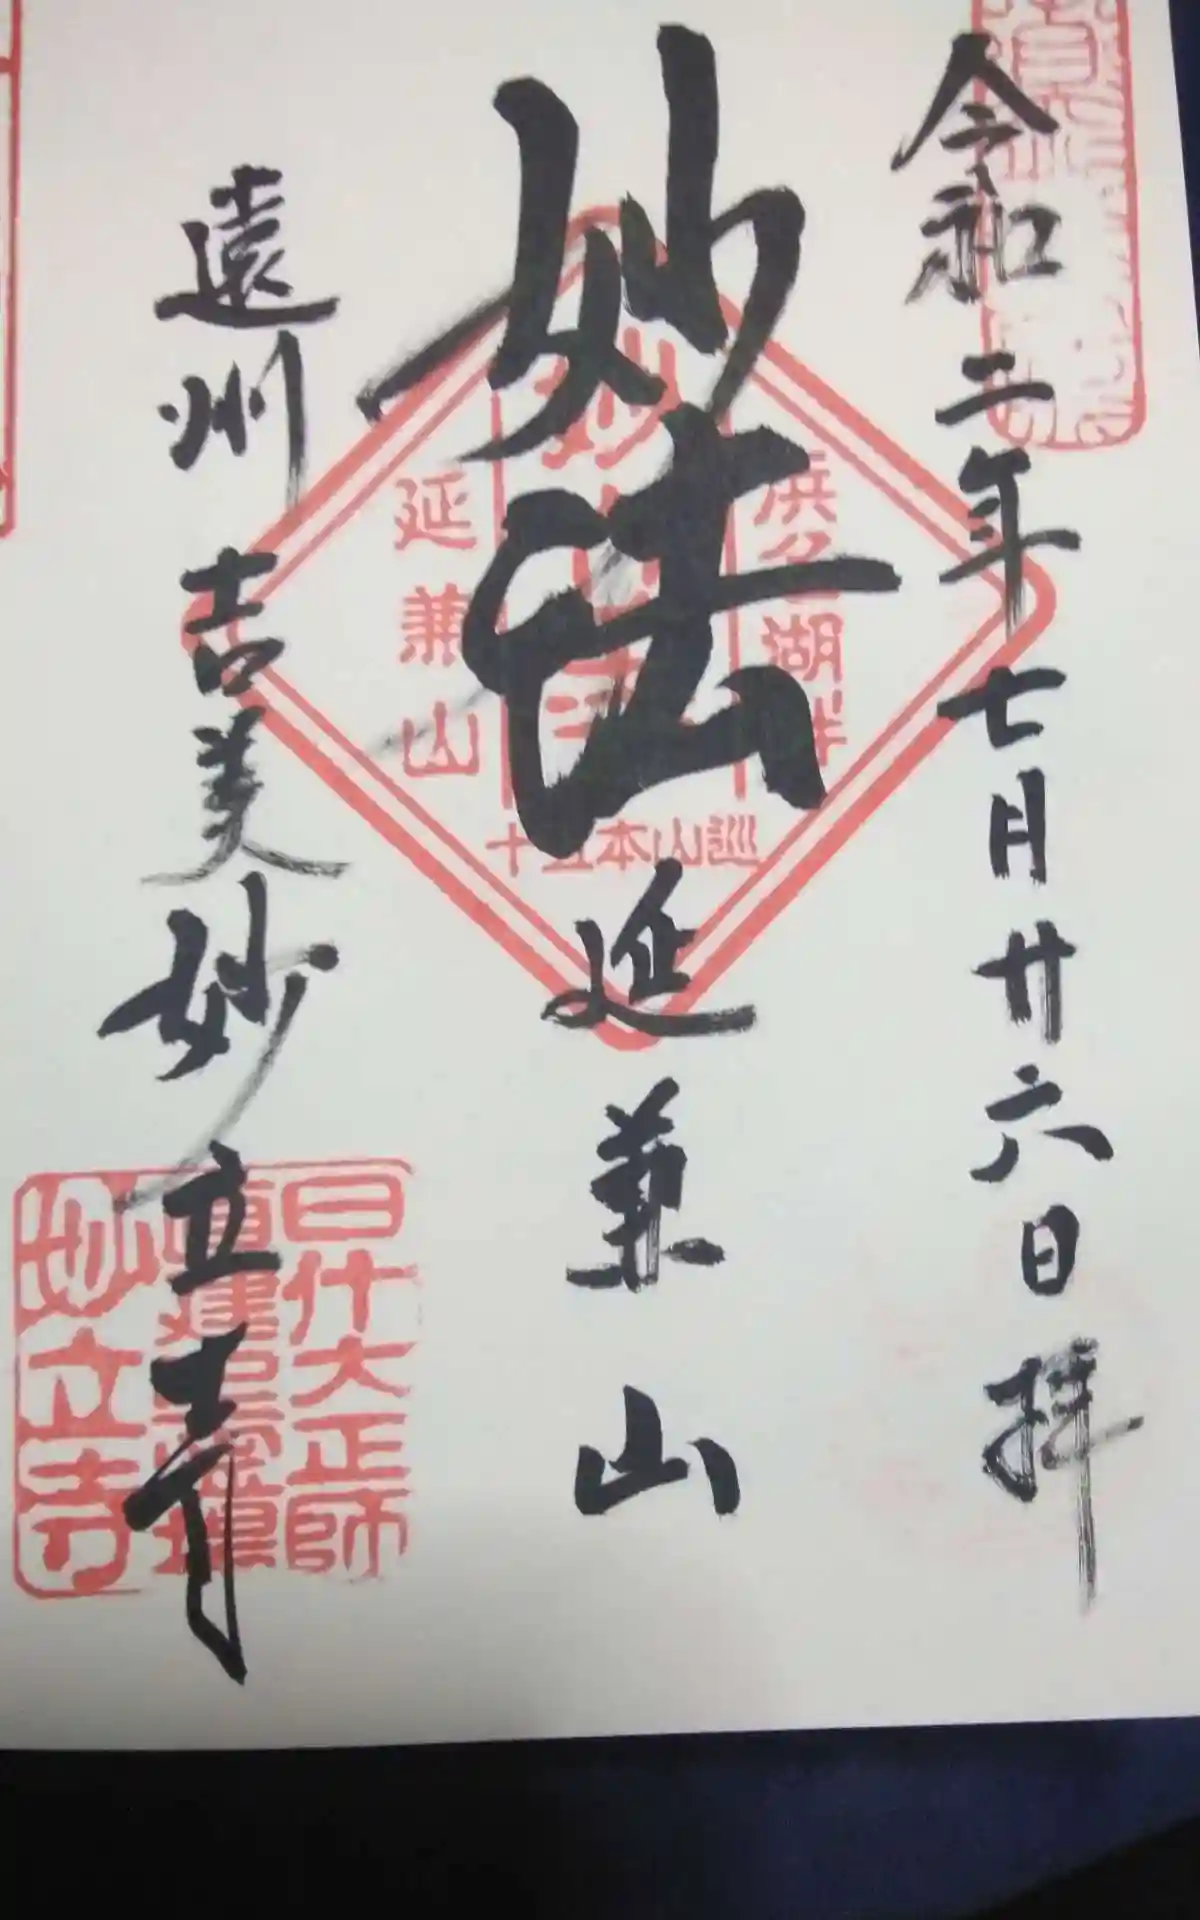 令和二年七月廿六日拝
妙法
延兼山
遠州吉美妙立寺
浜名湖畔
延兼山
十五本山巡
日什大正師
妙立寺